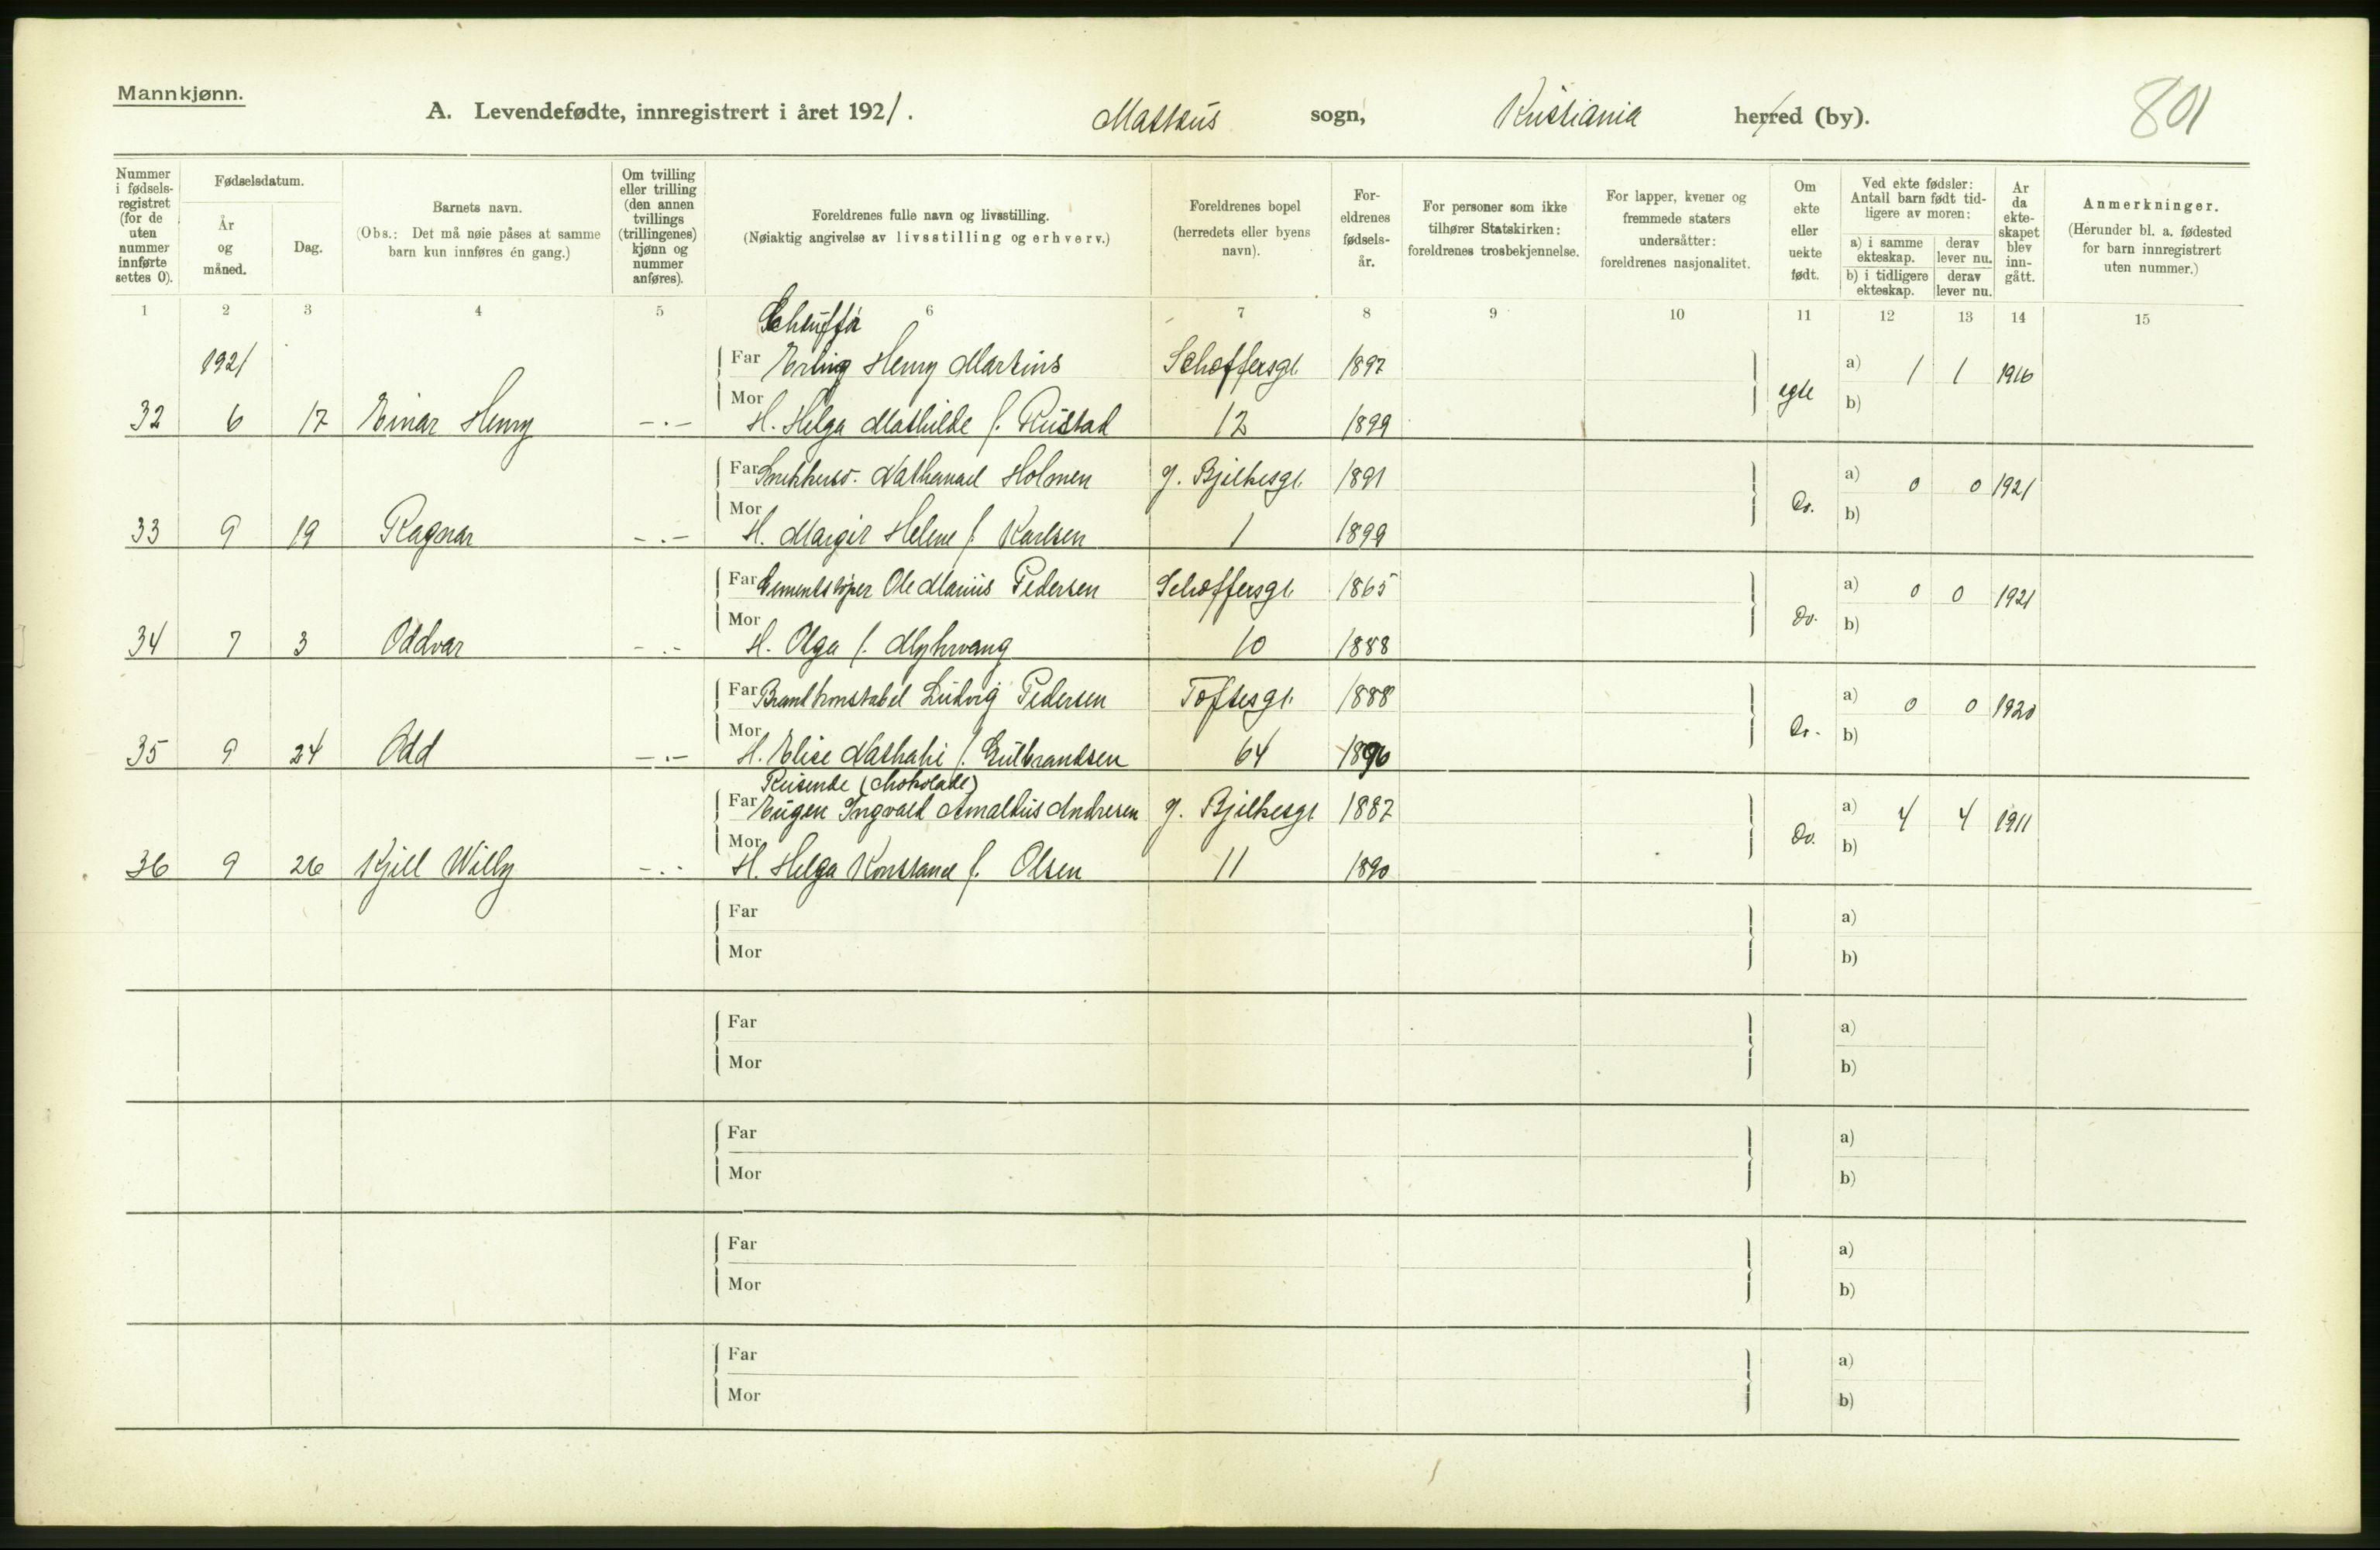 Mannkjønn.
A. Levendefødte, innregistrert i året 1921. Matteus sogn, Kristiania herred (by). 801
Nummer i fødsels-registret (for de uten nummer innførte settes 0).
Fødselsdatum.
År og måned.
Dag.
Barnets navn.
(Obs.: Det må nøie påses at samme barn kun innføres én gang.)
Om tvilling eller trilling (den annen tvillings (trillingenes) kjønn og nummer anføres).
Foreldrenes fulle navn og livsstilling.
(Nøiaktig angivelse av livsstilling og erhverv.)
Foreldrenes bopel (herredets eller byens navn).
For-eldrenes fødsels-år.
For personer som ikke tilhører Statskirken: foreldrenes trosbekjennelse.
For lapper, kvener og fremmede staters undersåtter: foreldrenes nasjonalitet.
Om ekte eller uekte født.
Ved ekte fødsler: Antall barn født tid-ligere av moren:
a) i samme ekteskap.
derav lever nu.
b) i tidligere ekteskap.
derav lever nu.
År da ekte-skapet blev inn-gått.
Anmerkninger.
(Herunder bl. a. fødested for barn innregistrert uten nummer.)
1 2 3 4 5 6 7 8 9 10 11 12 13 14 15
Schuffør
1921 Far Erling Henry Martins Schøffersgt. 1897 egte a) 1 1 1916
32 6 17 Einar Henry -.- Mor H. Helga Mathilde f. Rustad 12 1899 b)
Far Snekkersv. Nathanael Holmen g. Bjelkesgt. 1891 Do. a) 0 0 1921
33 9 19 Ragnar -.- Mor H. Margit Helene f. Karlsen 1 1899 b)
Far Cementstøper Ole Marius Pedersen Schøffersgt. 1865 Do. a) 0 0 1921
34 7 3 Oddvar -.- Mor H. Olga f. Myhrvang 10 1888 b)
Far Brandkonstabel Ludvig Pedersen Toftesgt. 1888 Do. a) 0 0 1920
35 9 24 Odd -.- Mor H. Elise Nathalie f. Gulbrandsen 64 1896 b)
Reisende (Chokolade)
Far Eugen Ingvald Amaldus Andresen g. Bjelkesgt 1887 Do. a) 4 4 1911
36 9 26 Kjell Willy -.- Mor H. Helga Konstance f. Olsen 11 1890 b)
Far a)
Mor b)
Far a)
Mor b)
Far a)
Mor b)
Far a)
Mor b)
Far a)
Mor b)